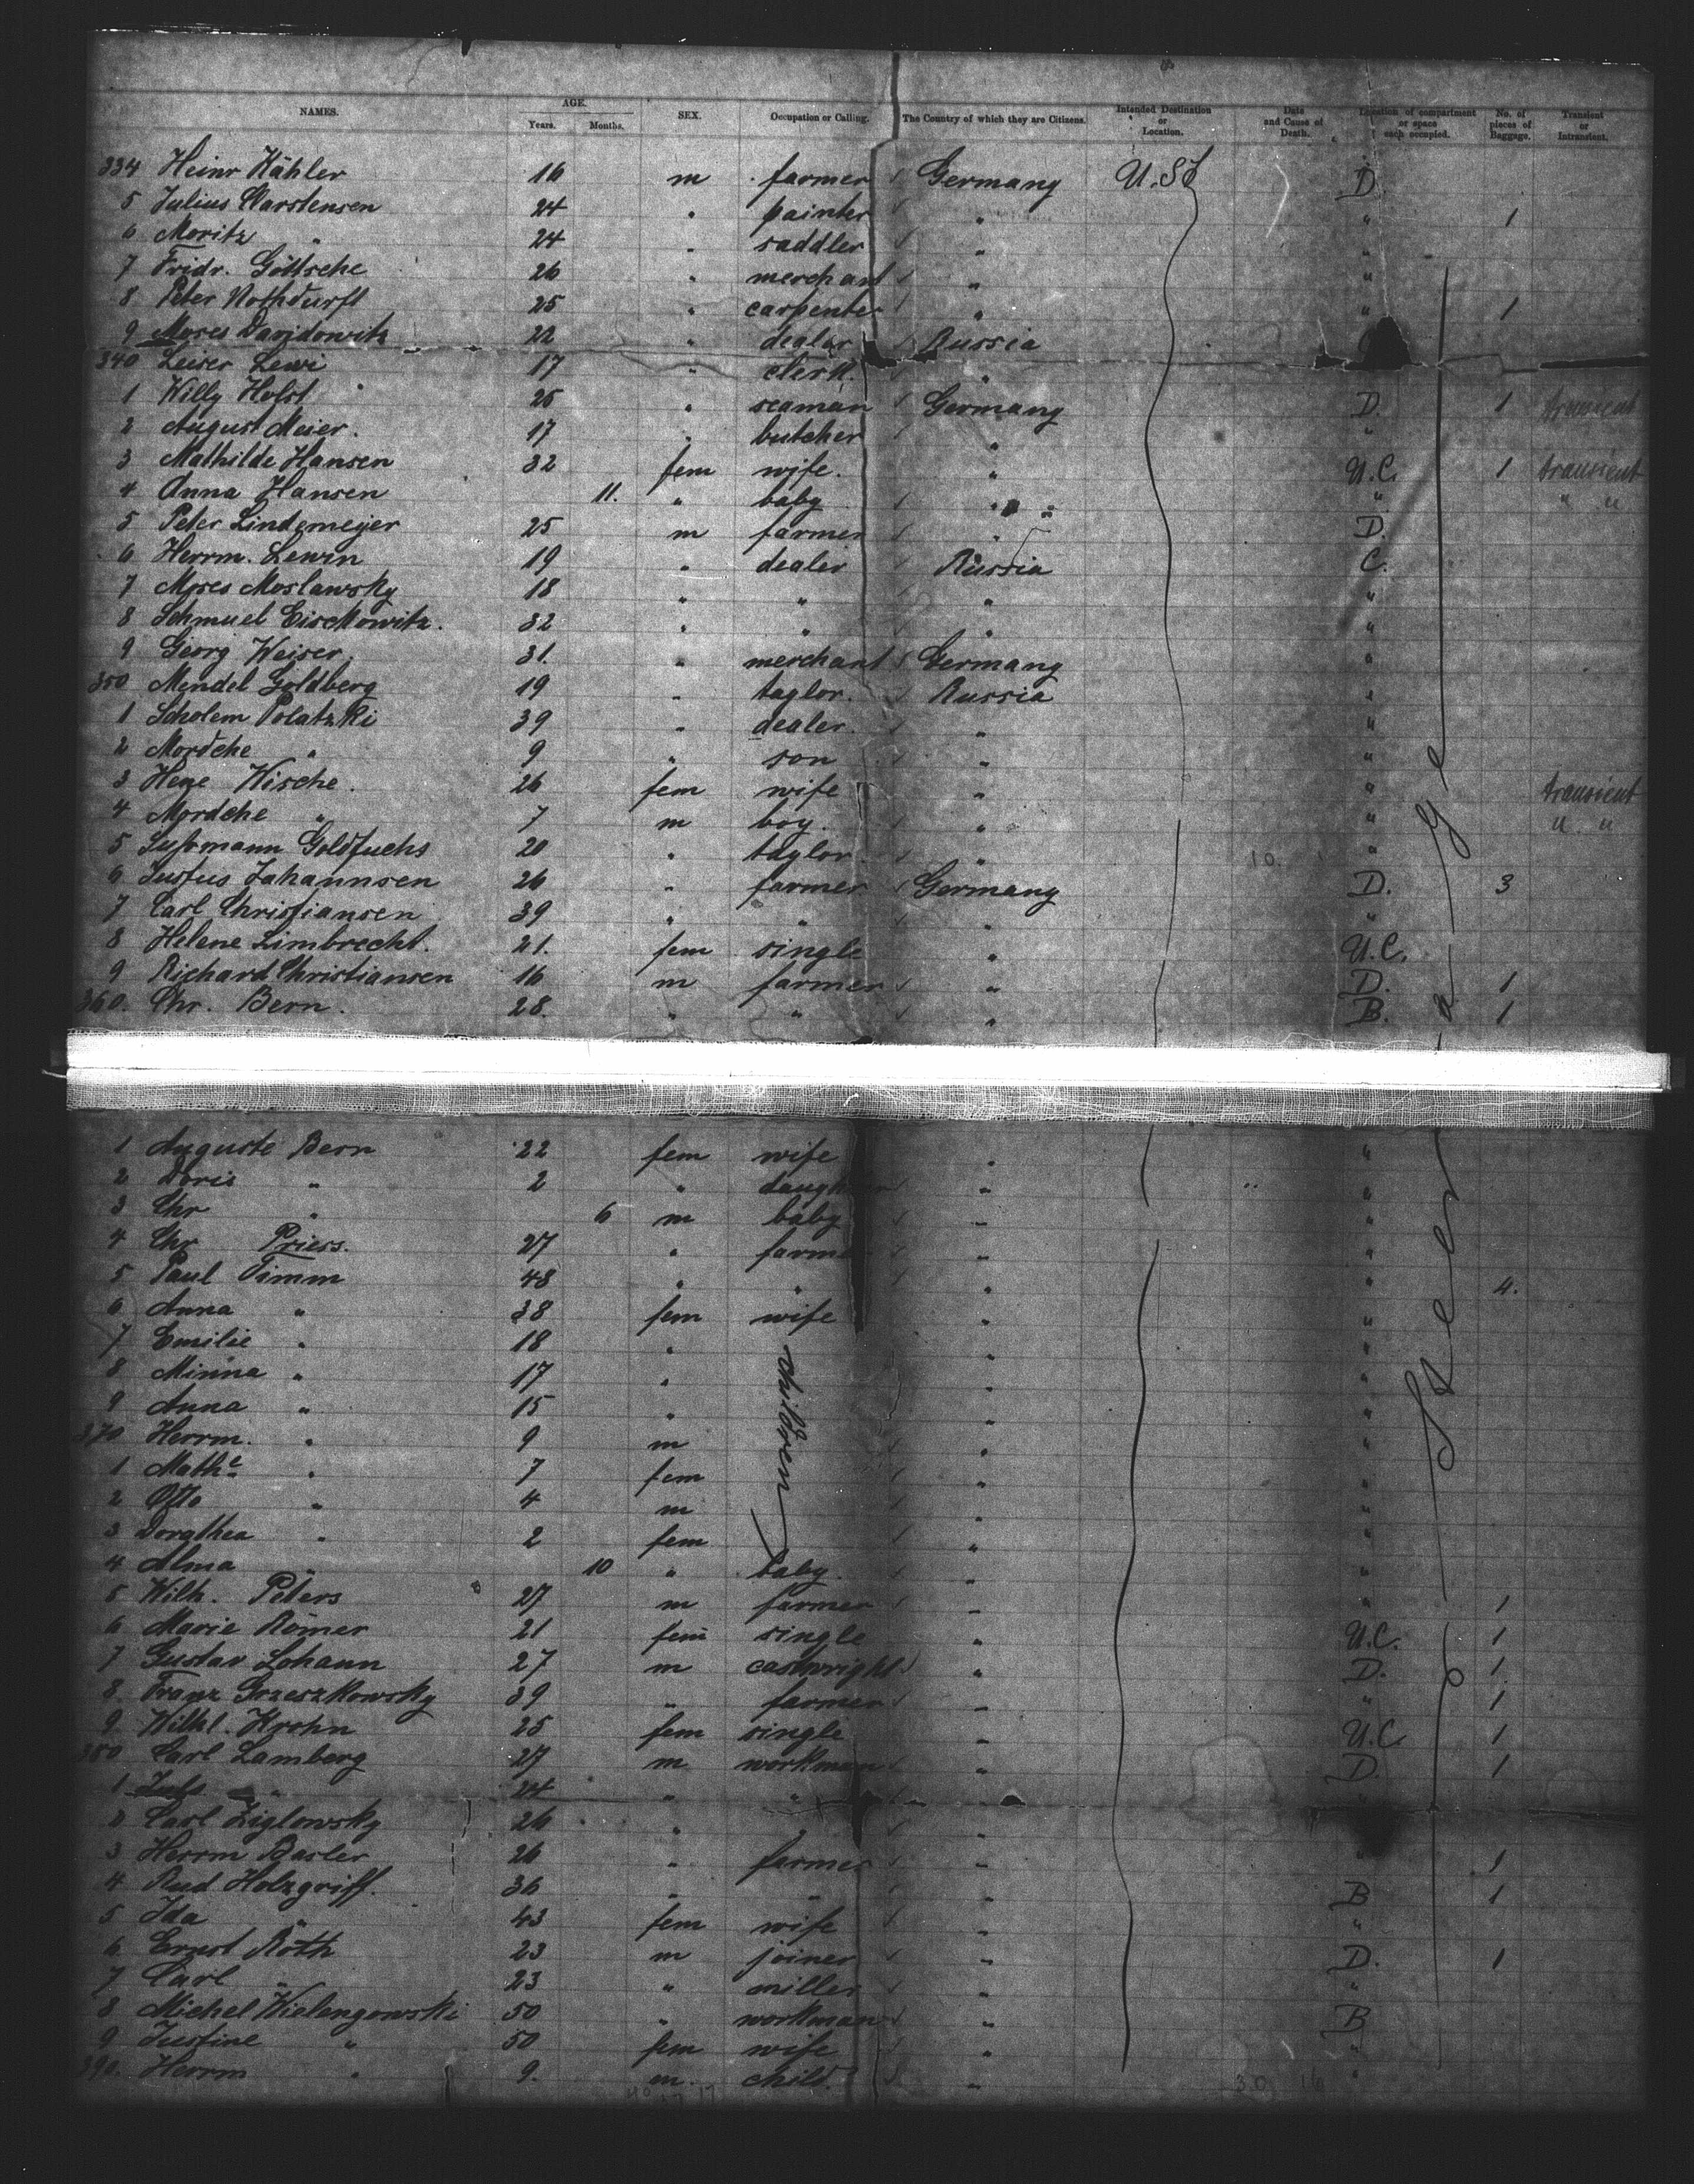 NAMES. AGE. Years. Months. SEX. Occupation or Calling. The Country of which they are Citizens. Intended Destination or Location. Date and Cause of Death. Location of compartment or space each occupied. No. of pieces of Baggage. Transient or Intransient.
334 Heinr Kähler 16 m farmer Germany U.St D.
5 Julius Carstensen 24 " painter " " 1
6 Moritz " 24 " saddler " "
7 Fridr. Göttsche 26 " merchant " "
8 Peter Nothdurft 25 " carpenter " " 1
9 Moses Davidowitz 22 " dealer Russia
340 Leiser Lewi 17 " clerk "
1 Willy Holst 25 " seaman Germany D. 1 transient
2 August Meier. 17 " butcher " "
3 Mathilde Hansen 32 fem wife. " U.C. 1 transient
4 Anna Hansen 11. " baby " " " "
5 Peter Lindemeijer 25 m farmer " D.
6 Herrm. Lewin 19 " dealer Russia C.
7 Moses Moslawsky 18 " " " "
8 Schmuel Eisckowitz. 32 " " " "
9 Georg Weiser. 31. " merchant Germany "
350 Mendel Goldberg 19 " taylor. Russia "
1 Scholem Polatzki 39 " dealer. " "
2 Mordche " 9 " son " "
3 Hene Wische. 26 fem wife " " transient
4 Mordche " 7 m boy. " " " "
5 Sußmann Goldfuchs 20 " taylor " "
6 Justus Johannsen 26 " farmer Germany D. 3
7 Carl Christiansen 39 " " " "
8 Helene Limbrecht. 21. fem single " U.C.
9 Richard Christiansen 16 m farmer " D. 1
360. Chr. Bern. 28. " " " B. 1
1 Auguste Bern 22 fem wife " "
2 Doris " 2 " daughter " "
3 Chr " 6 m baby " "
4 Chr Priess. 27 " farmer " "
5 Paul Timm 48 " " " " 4.
6 Anna " 38 fem wife " "
7 Emilie " 18 " children " "
8 Minna " 17 " " "
9 Anna " 15 " " "
370 Herrm. " 9 m " "
1 Mathe " 7 fem " "
2 Otto " 4 m " "
3 Dorathea " 2 fem " "
4 Alma " 10 " baby. " "
5 Wilh. Peters 27 m farmer " " 1
6 Marie Römer 21 fem single " U.C. 1
7 Gustav Lohann 27 m cartwright " D. 1
8. Franz Grzeszkowsky 39 " farmer " " 1
9. Wilhl. Krohn 25 fem single " U.C 1
380 Carl Lamberg 27 m workman " D. 1
1 Juls " 24 " "
2 Carl Ziglowsky 26 " " "
3 Herrm Basler 26 " farmer " " 1
4 Rud Holzgriff. 36 " " " B 1
5 Ida " 43 fem wife " "
6 Ernst Roth 23 m joiner " D. 1
7 Carl " 23 " miller " "
8 Michel Wielengowski 50 " workman " B
9 Justine " 50 fem wife " "
390. Herrm " 9. m. child. " "
Steerage